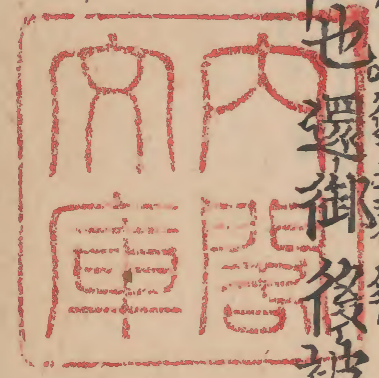 也還御後被
内閣
文庫